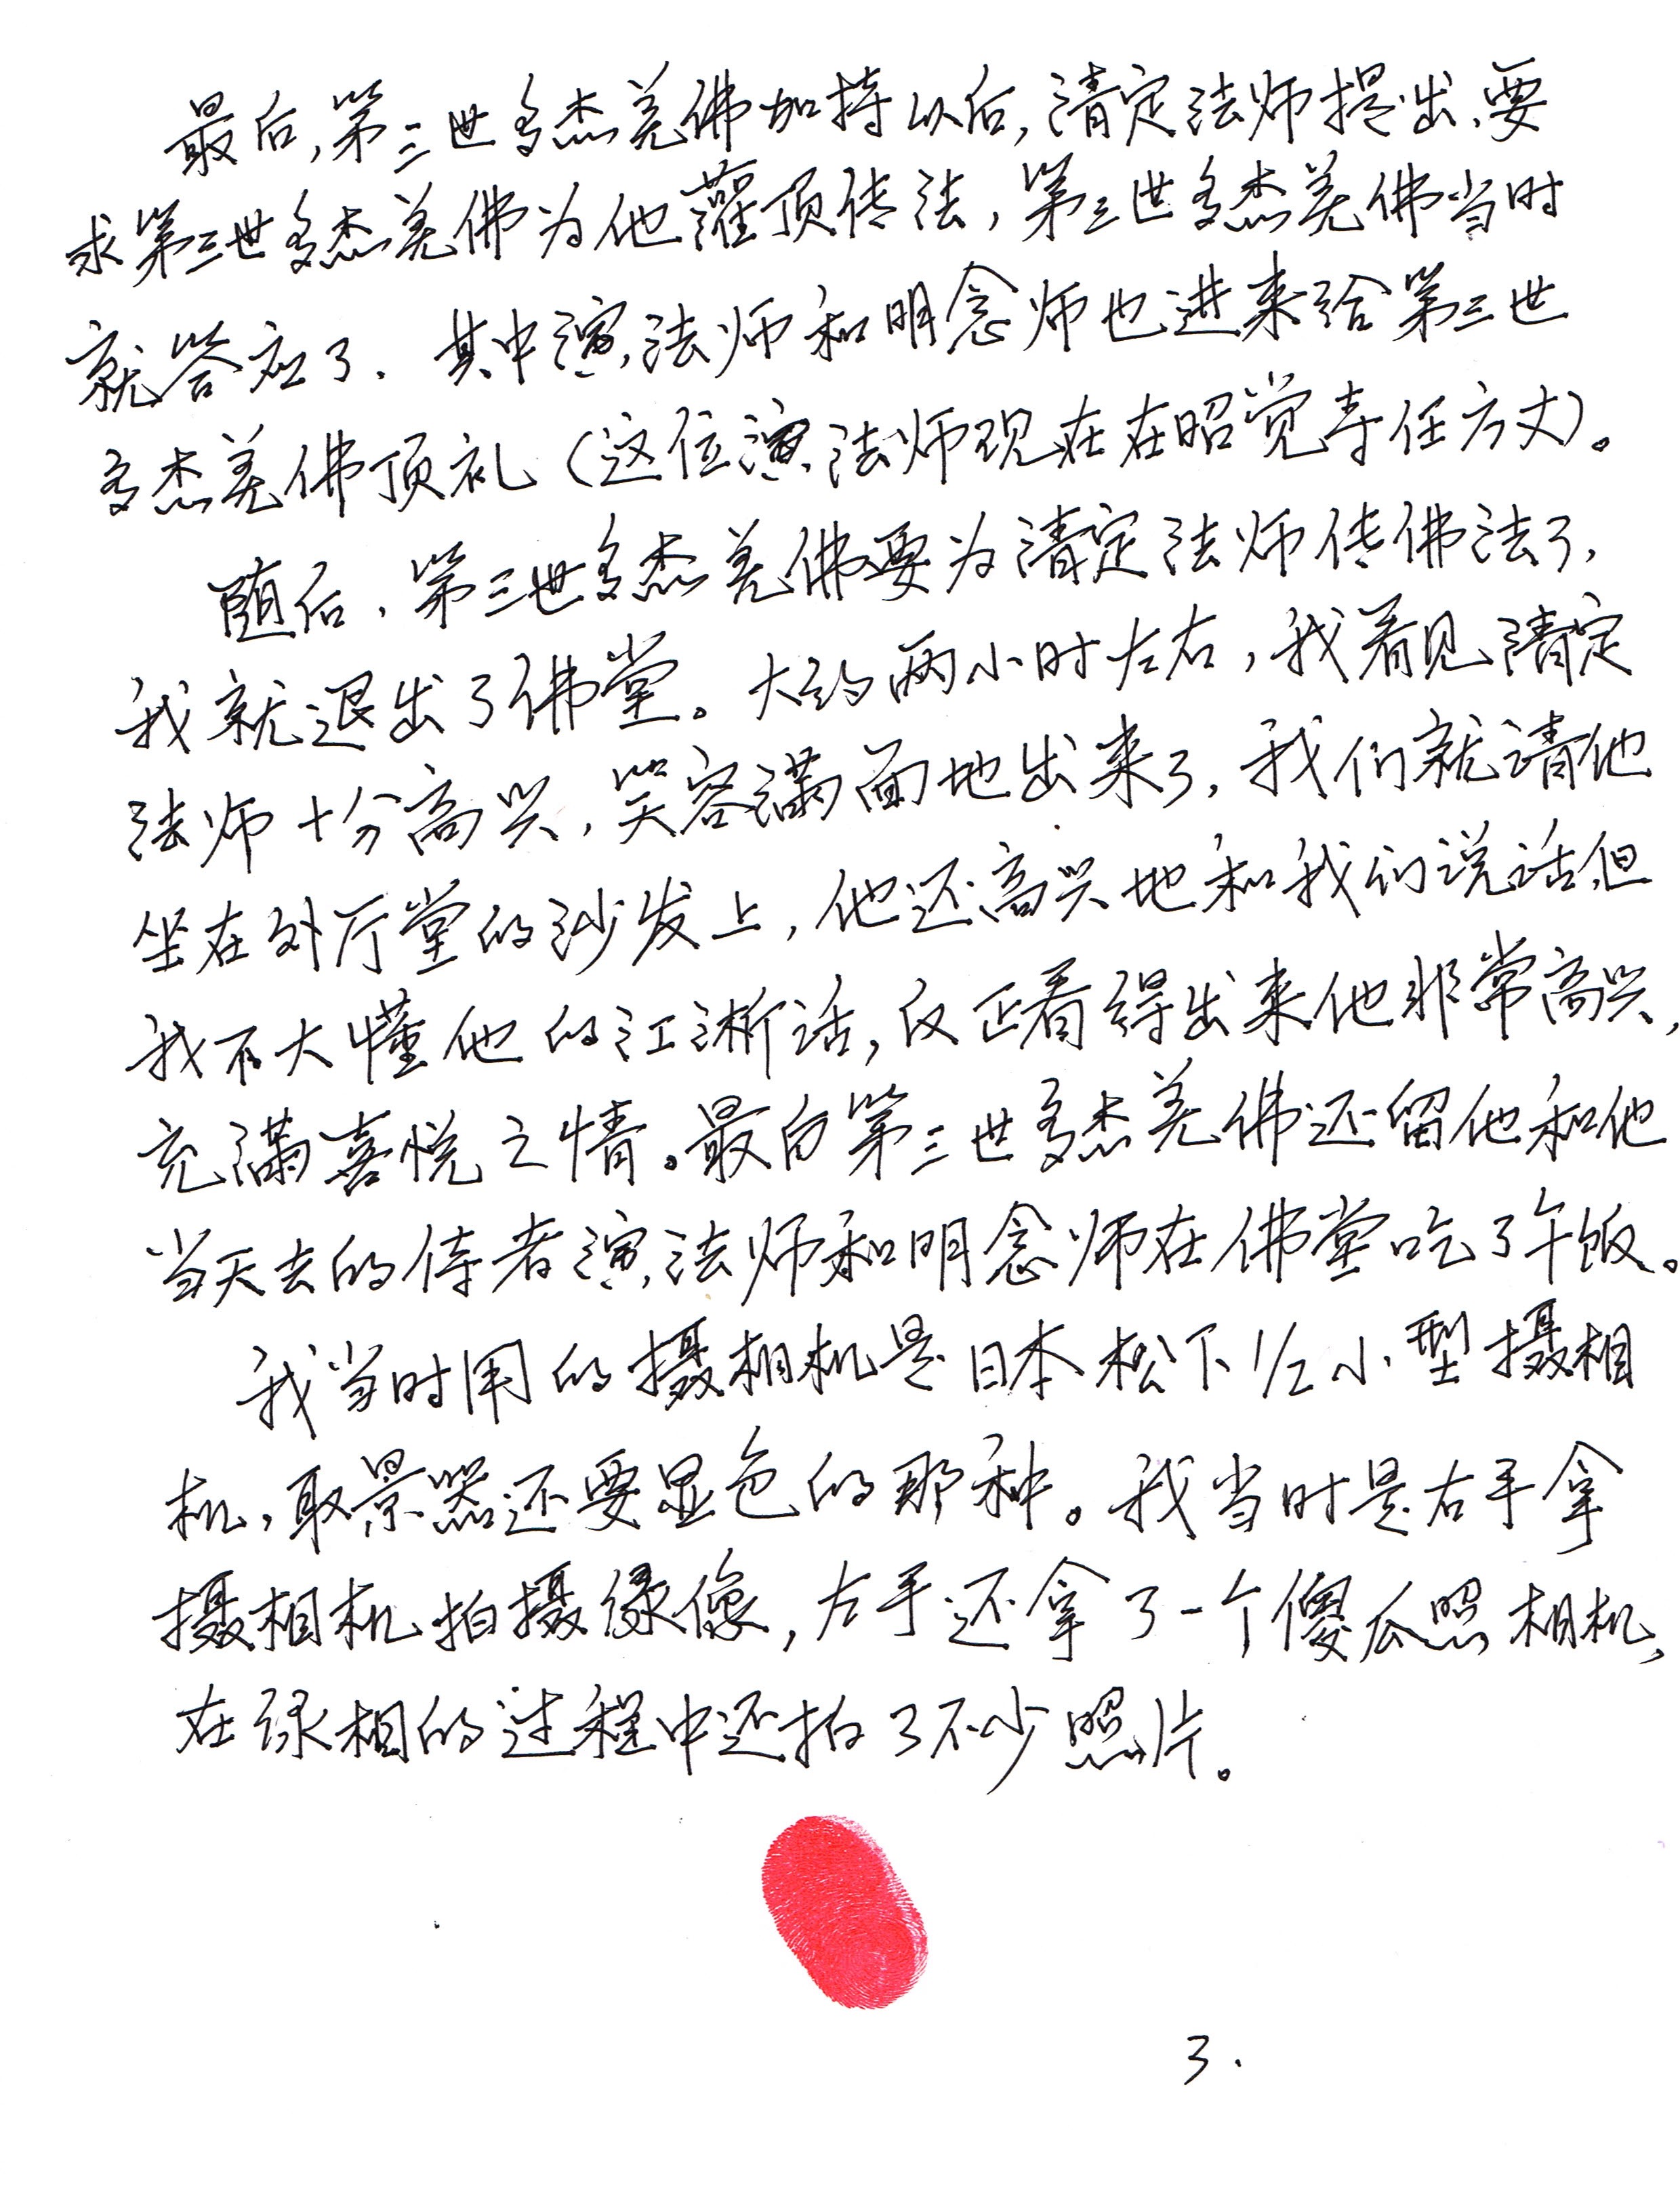 最后,第三世多杰羌佛加持以后,清定法师提出,要
求第三世多杰羌佛为他灌顶传法,第三世多杰羌佛当时
就答应了.其中演法师和明念师也进来给第三世
多杰羌佛顶礼(这位演法师现在在昭觉寺任方丈)。
随后.第三世多杰羌佛要为清定法师传佛法了,
我就退出了佛堂。大约两小时左右,我看见清定
法师十分高兴,笑容满面地出来了,我们就请他
坐在外厅堂的沙发上,他还高兴地和我们说话,但
我不大懂他的江淅话,反正看得出来他非常高兴,
充满喜悦之情。最后第三世多杰羌佛还留他和他
当天去的侍者演法师和明念师在佛堂吃了午饭。
我当时用的摄相机是日本松下1/2小型摄相
机,取景器还要显色的那种。我当时是右手拿
摄相机拍摄录像,左手还拿了一个傻瓜照相机,
在录相的过程中还拍了不少照片。
3.